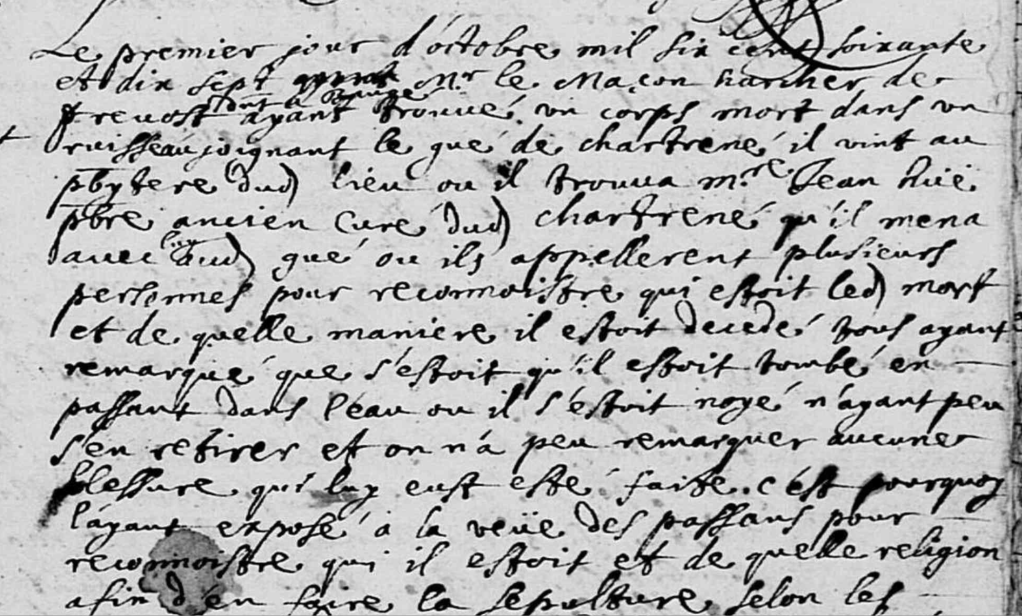 Le premier jour d'octobre mil six cent soixante
et dix sept Mr le Maçon archer de
prevost ayant trouvé un corps mort dans un
ruisseau joignant le gué de chartrené il vint au
pbytere dud lieu ou il trouva mre Jean hüe
pbre ancien curé dud chartrené qu'il mena
avec luy aud gué ou ils appellerent plusieurs
personnes pour reconnoistre qui estoit led mort
et de quelle maniere il estoit decedé tous ayant
remarqué que s'estoit qu'il estoit tombé en
passant dans l'eau ou il s'estoit noyé n'ayant peu
s'en retirer et on n'a peu remarquer aucune
blessure qui luy eust esté faite. c'est pourquoy
l'ayant exposé a la veüe des passans pour
reconnoistre qui il estoit et de quelle religion
afin d'en faire la sepulture selon les